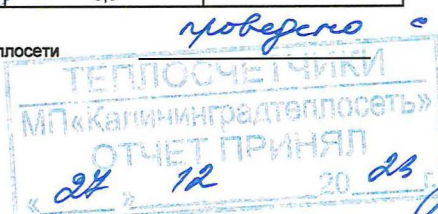 проведено с
плосети
ТЕПЛОСЧЕТЧИКИ
МП«Калининградтеплосеть»
ОТЧЕТ ПРИНЯЛ
« 27 » 12 20 23 г.